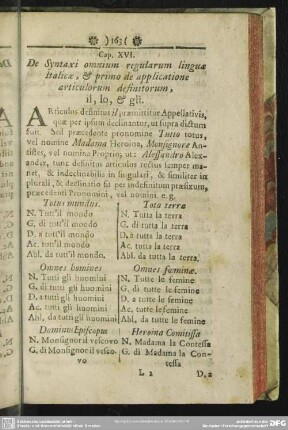 )163(
Cap. XVI.
De Syntaxi omnium regularum linguæ
italicæ, & primo de applicatione
articulorum definitorum,
il, lo, & gli.
ARticulus definitus il præmittitur Appellativis,
quæ per ipsum declinantur, ut supra dictum
fuit. Sed præcedente pronomine Tutto totus,
vel nomine Madama Heroina, Monsignore An-
tistes, vel nomine Proprio, ut: Alessandro Alex-
ander, tunc definitus articulus rectus semper ma-
net, & indeclinabilis in singulari, & similiter in
plurali, & declinatio fit per indefinitum præfixum,
præcedenti Pronomini, vel nomini. e.g.
Totus mundus.
N. Tutt'il mondo
G. di tutt'il mondo
D. a tutt'il mondo
Ac. tutt'il mondo
Abl. da tutt'il mondo.
Omnes homines
N. Tutti gli huomini
G. di tutti gli huomini
D. a tutti gli huomini
Ac. tutti gli huomini
Abl. da tutti gli huomini
Dominus Episcopus
N. Monsignor il vescovo
G. di Monsignor il vesco-
vo
Tota terra
N. Tutta la terra
G. di tutta la terra
D. a tutta la terra
Ac. tutta la terra
Abl. da tutta la terra.
Omnes feminæ.
N. Tutte le femine
G. di tutte le femine
D. a tutte le femine
Ac. tutte le femine
Abl. da tutte le femine
Heroina Comitissa
N. Madama la Contessa
G. di Madama la Con-
tessa
L 2
D. a